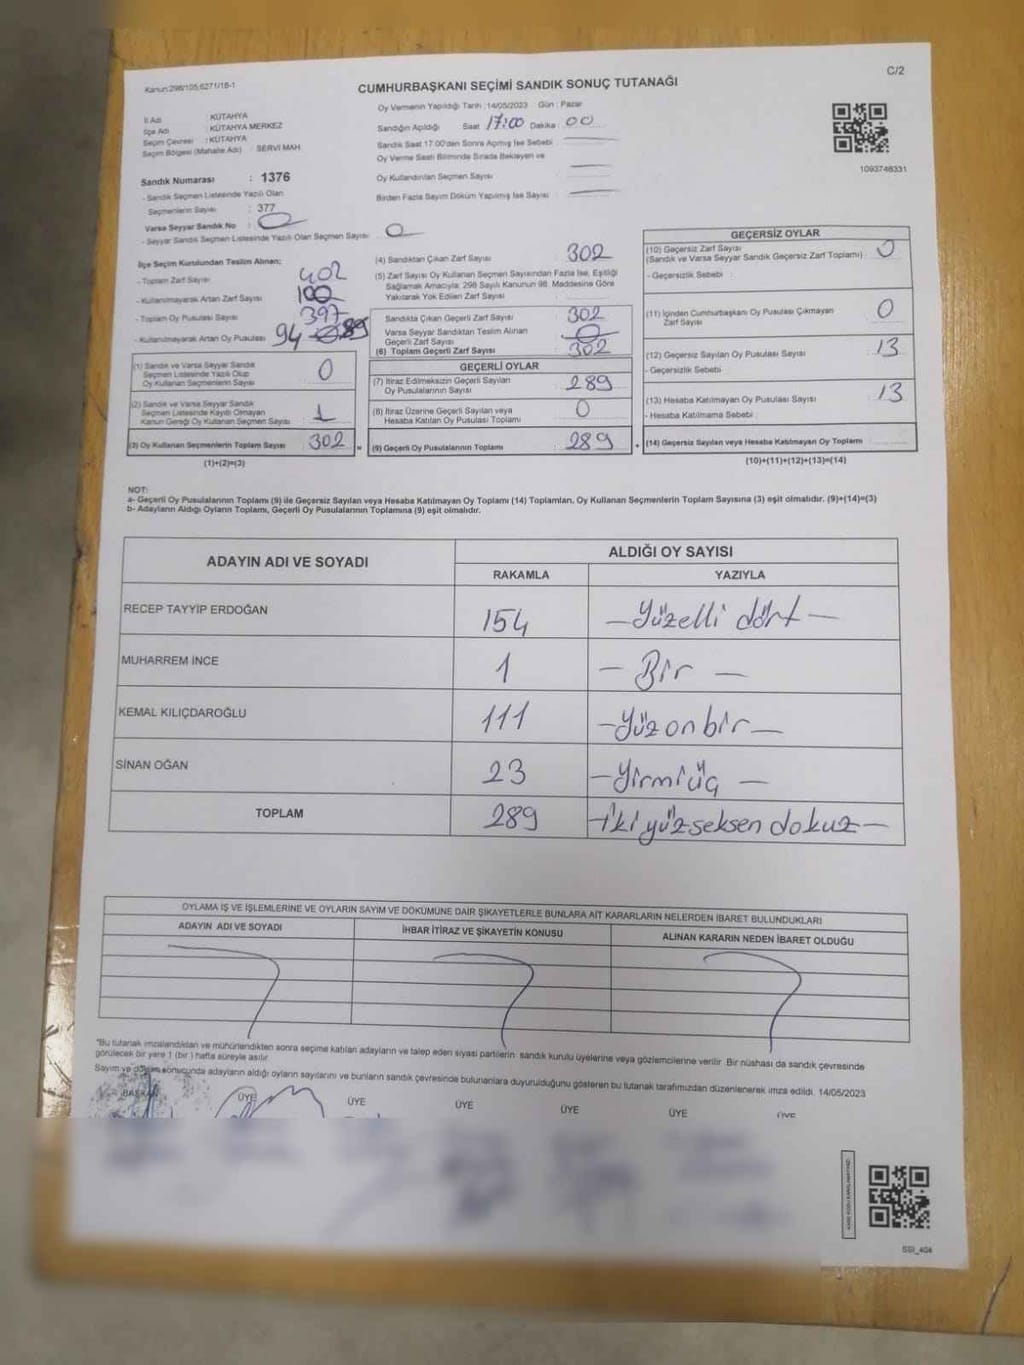 C/2
Kanun:298/105;6271/18-1
CUMHURBAŞKANI SEÇİMİ SANDIK SONUÇ TUTANAĞI
Oy Vermenin Yapıldığı Tarih :14/05/2023 Gün : Pazar
İl Adı : KÜTAHYA
İlçe Adı : KÜTAHYA MERKEZ
Seçim Çevresi : KÜTAHYA
Seçim Bölgesi (Mahalle Adı) : SERVİ MAH
Sandığın Açıldığı Saat 17:00 Dakika : 00
Sandık Saat 17.00'den Sonra Açılmış İse Sebebi :
Oy Verme Saati Bitiminde Sırada Bekleyen ve
Oy Kullandırılan Seçmen Sayısı :
Birden Fazla Sayım Döküm Yapılmış İse Sayısı :
1093748331
Sandık Numarası : 1376
- Sandık Seçmen Listesinde Yazılı Olan
Seçmenlerin Sayısı : 377
Varsa Seyyar Sandık No : 0
- Seyyar Sandık Seçmen Listesinde Yazılı Olan Seçmen Sayısı : 0
İlçe Seçim Kurulundan Teslim Alınan;
- Toplam Zarf Sayısı : 402
- Kullanılmayarak Artan Zarf Sayısı : 100
- Toplam Oy Pusulası Sayısı : 397
- Kullanılmayarak Artan Oy Pusulası : 94
(1) Sandık ve Varsa Seyyar Sandık
Seçmen Listesinde Yazılı Olup
Oy Kullanan Seçmenlerin Sayısı : 0
(2) Sandık ve Varsa Seyyar Sandık
Seçmen Listesinde Kayıtlı Olmayan
Kanun Gereği Oy Kullanan Seçmen Sayısı : 1
(3) Oy Kullanan Seçmenlerin Toplam Sayısı : 302 =
(1)+(2)=(3)
(4) Sandıktan Çıkan Zarf Sayısı : 302
(5) Zarf Sayısı Oy Kullanan Seçmen Sayısından Fazla İse, Eşitliği
Sağlamak Amacıyla; 298 Sayılı Kanunun 98. Maddesine Göre
Yakılarak Yok Edilen Zarf Sayısı :
Sandıkta Çıkan Geçerli Zarf Sayısı : 302
Varsa Seyyar Sandıktan Teslim Alınan
Geçerli Zarf Sayısı : 0
(6) Toplam Geçerli Zarf Sayısı : 302
GEÇERLİ OYLAR
(7) İtiraz Edilmeksizin Geçerli Sayılan
Oy Pusulalarının Sayısı : 289
(8) İtiraz Üzerine Geçerli Sayılan veya
Hesaba Katılan Oy Pusulası Toplamı : 0
(9) Geçerli Oy Pusulalarının Toplamı : 289 +
GEÇERSİZ OYLAR
(10) Geçersiz Zarf Sayısı
(Sandık ve Varsa Seyyar Sandık Geçersiz Zarf Toplamı) : 0
- Geçersizlik Sebebi :
(11) İçinden Cumhurbaşkanı Oy Pusulası Çıkmayan
Zarf Sayısı : 0
(12) Geçersiz Sayılan Oy Pusulası Sayısı : 13
- Geçersizlik Sebebi :
(13) Hesaba Katılmayan Oy Pusulası Sayısı : 13
- Hesaba Katılmama Sebebi :
(14) Geçersiz Sayılan veya Hesaba Katılmayan Oy Toplamı :
(10)+(11)+(12)+(13)=(14)
NOT:
a- Geçerli Oy Pusulalarının Toplamı (9) ile Geçersiz Sayılan veya Hesaba Katılmayan Oy Toplamı (14) Toplamları, Oy Kullanan Seçmenlerin Toplam Sayısına (3) eşit olmalıdır. (9)+(14)=(3)
b- Adayların Aldığı Oyların Toplamı, Geçerli Oy Pusulalarının Toplamına (9) eşit olmalıdır.
ADAYIN ADI VE SOYADI
ALDIĞI OY SAYISI
RAKAMLA YAZIYLA
RECEP TAYYİP ERDOĞAN 154 – Yüzelli dört –
MUHARREM İNCE 1 – Bir –
KEMAL KILIÇDAROĞLU 111 – Yüz on bir –
SİNAN OĞAN 23 – Yirmi üç –
TOPLAM 289 – İki yüz seksen dokuz –
OYLAMA İŞ VE İŞLEMLERİNE VE OYLARIN SAYIM VE DÖKÜMÜNE DAİR ŞİKAYETLERLE BUNLARA AİT KARARLARIN NELERDEN İBARET BULUNDUKLARI
ADAYIN ADI VE SOYADI İHBAR İTİRAZ VE ŞİKAYETİN KONUSU ALINAN KARARIN NEDEN İBARET OLDUĞU
"Bu tutanak imzalandıktan ve mühürlendikten sonra seçime katılan adayların ve talep eden siyasi partilerin sandık kurulu üyelerine veya gözlemcilerine verilir. Bir nüshası da sandık çevresinde
görülecek bir yere 1 (bir ) hafta süreyle asılır.
Sayım ve döküm sonucunda adayların aldığı oyların sayılarını ve bunların sandık çevresinde bulunanlara duyurulduğunu gösteren bu tutanak tarafımızdan düzenlenerek imza edildi. 14/05/2023
BAŞKAN ÜYE ÜYE ÜYE ÜYE ÜYE ÜYE
SSI_404